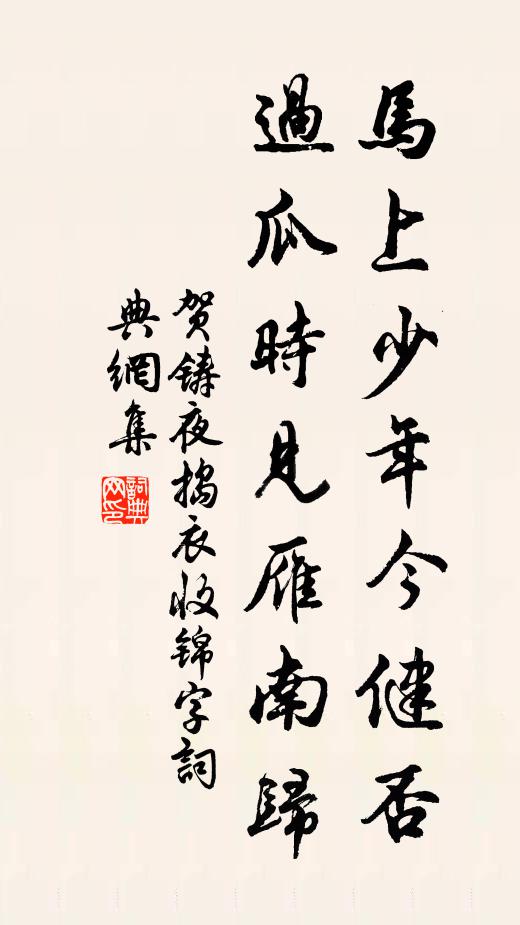 馬上少年今健否
過瓜時見雁南歸
贺鑄夜擣衣收錦字詞
典網集
詞典
网印